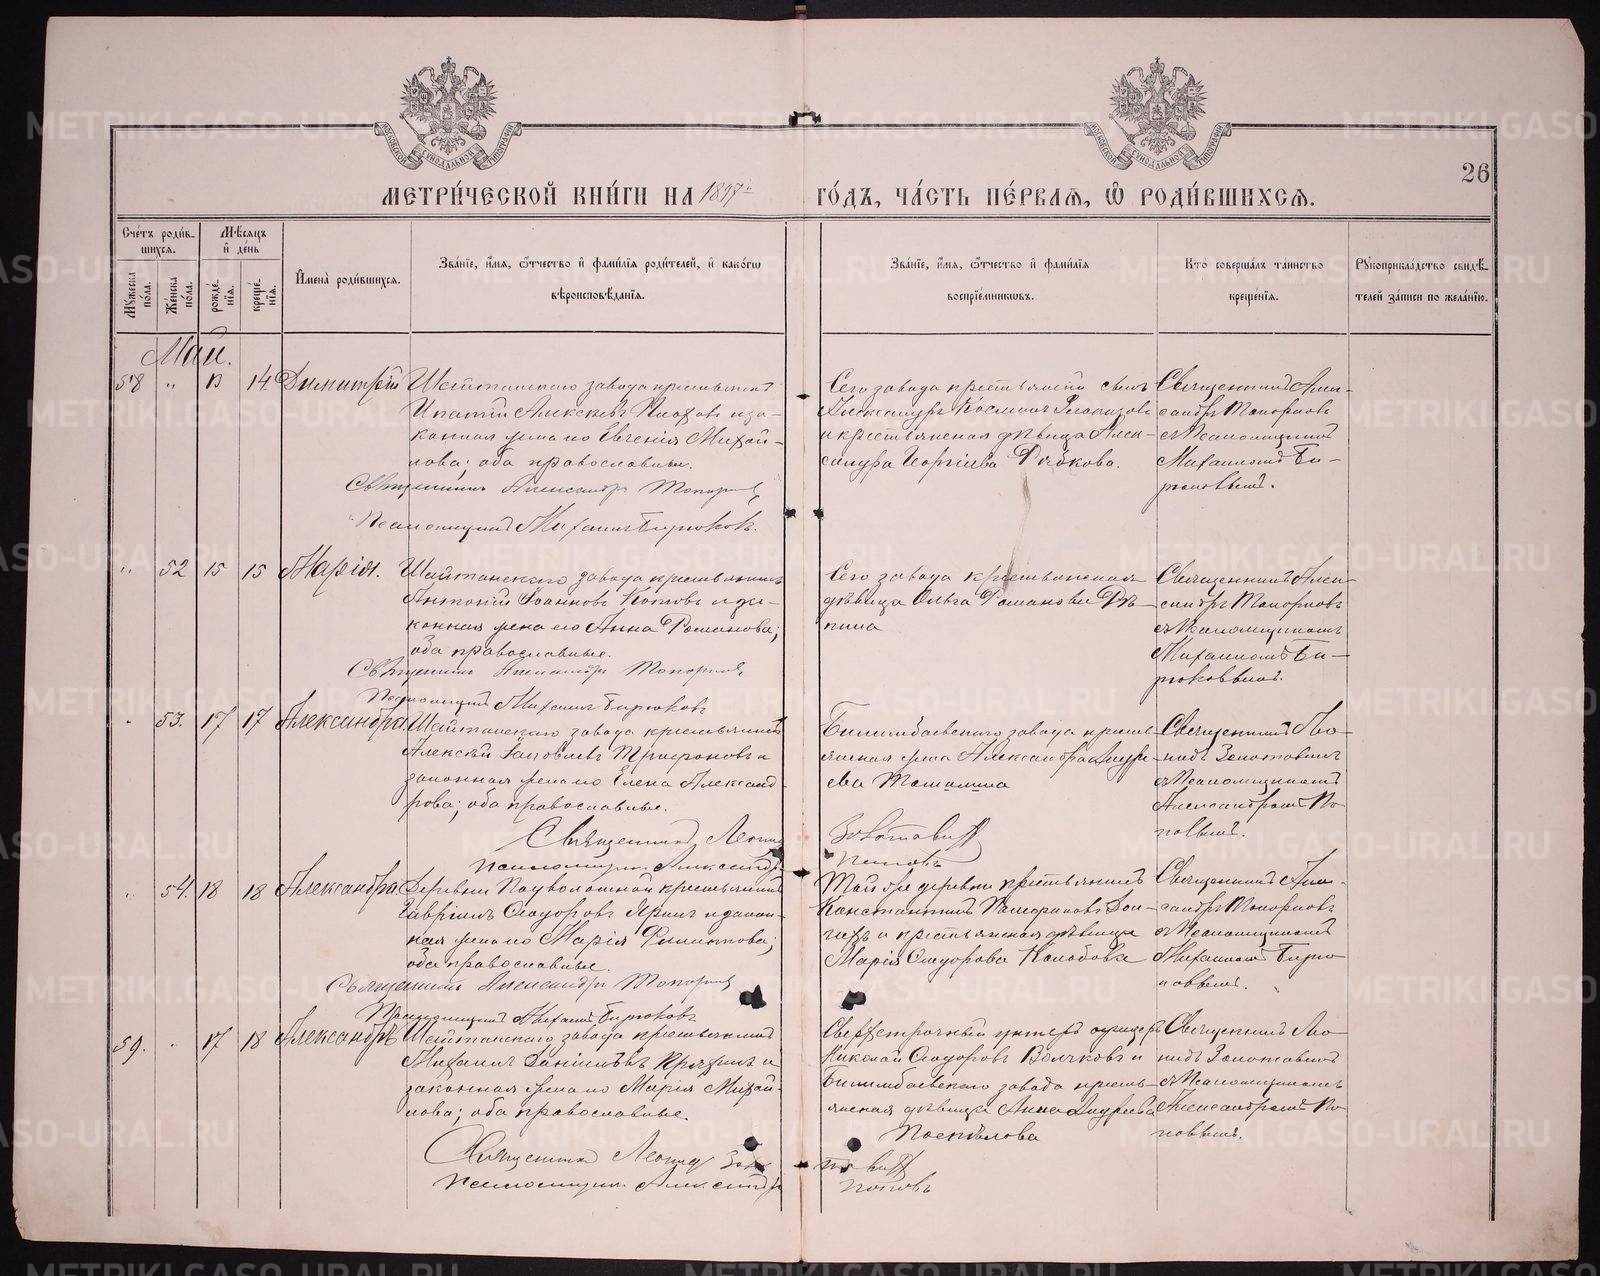 26
МЕТРИ́ЧЕСКОЙ КНИ́ГИ НА 1897 й ГО́ДЪ, ЧА́СТЬ ПЕ́РВАѦ, Ѡ҆ РОДИ́ВШИХСѦ.
Сче́тъ роди́в-
шихсѧ.
Мꙋ́жеска по́ла.
Же́нска по́ла.
Мѣ́сѧцъ и҆ де́нь
рожде́нїѧ.
креще́нїѧ.
И҆мена̀ роди́вшихсѧ.
Зва́нїе, и҆́мѧ, ѻ҆́тчество и҆ фами́лїѧ роди́телей, и҆ како́гѡ
вѣроисповѣ́данїѧ.
Зва́нїе, и҆́мѧ, ѻ҆́тчество и҆ фами́лїѧ
воспрїе́мникѡвъ.
Кто̀ соверша́лъ та́инство
креще́нїѧ.
Рꙋкоприкла́дство свидѣ́-
телей за́писи по жела́нїю.
Май.
58 " 13 14 Димитрій
Шайтанскаго завода крестьянинъ
Ипатій Алексѣевъ и за-
конная жена его Евгенія Михай-
лова; оба православные.
Священникъ Александръ Топорковъ
Псаломщикъ Михаилъ Бирюковъ.
Сего завода крестьянскій сынъ
Александръ Косминъ
и крестьянская дѣвица Алек-
сандра Георгіева Рябкова.
Священникъ Алек-
сандръ Топорковъ
съ Псаломщикомъ
Михаиломъ Би-
рюковымъ.
" 52 15 15 Марія.
Шайтанскаго завода крестьянинъ
Антоній Іоанновъ Котовъ и за-
конная жена его Анна Романова;
оба православные.
Священникъ Александръ Топорковъ
Псаломщикъ Михаилъ Бирюковъ
Сего завода крестьянская
дѣвица Ольга Романова Рѣ-
пина
Священникъ Алек-
сандръ Топорковъ
съ Псаломщикомъ
Михаиломъ Би-
рюковымъ.
" 53. 17 17 Александра.
Шайтанскаго завода крестьянинъ
Алексѣй Іаковлевъ Трифоновъ и
законная жена его Елена Александ-
рова; оба православные.
Священникъ Леонидъ Золотавинъ
Псаломщикъ Александръ Поповъ
Билимбаевскаго завода кресть-
янская жена Александра Андре-
ева
Священникъ Лео-
нидъ Золотавинъ
съ Псаломщикомъ
Александромъ По-
повымъ.
" 54. 18 18 Александра
Деревни Подволошной крестьянинъ
Гавріилъ Сидоровъ Яринъ и закон-
ная жена его Марія Филиппова;
оба православные.
Священникъ Александръ Топорковъ
Псаломщикъ Михаилъ Бирюковъ
Той же деревни крестьянинъ
Константинъ
и крестьянская дѣвица
Марія Сидорова Колобова
Священникъ Алек-
сандръ Топорковъ
съ Псаломщикомъ
Михаиломъ Бирю-
ковымъ.
59. " 17 18 Александръ
Шайтанскаго завода крестьянинъ
Михаилъ Даніиловъ и
законная жена его Марія Михай-
лова; оба православные.
Священникъ Леонидъ Золотавинъ
Псаломщикъ Александръ Поповъ
Сверхсрочный унтеръ офицеръ
Николай Сидоровъ Волчковъ и
Билимбаевскаго завода кресть-
янская дѣвица Анна Андреева
Поспѣлова
Священникъ Лео-
нидъ Золотавинъ
съ Псаломщикомъ
Александромъ По-
повымъ.
METRIKI.GASO-URAL.RU